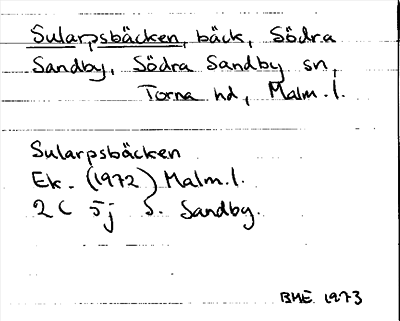 Sularpsbäcken, bäck, Södra
Sandby, Södra Sandby sn,
Torna hd, Malm.l.
Sularpsbäcken
Ek. (1972) Malm.l.
2C 5j S. Sandby.
BME 1973